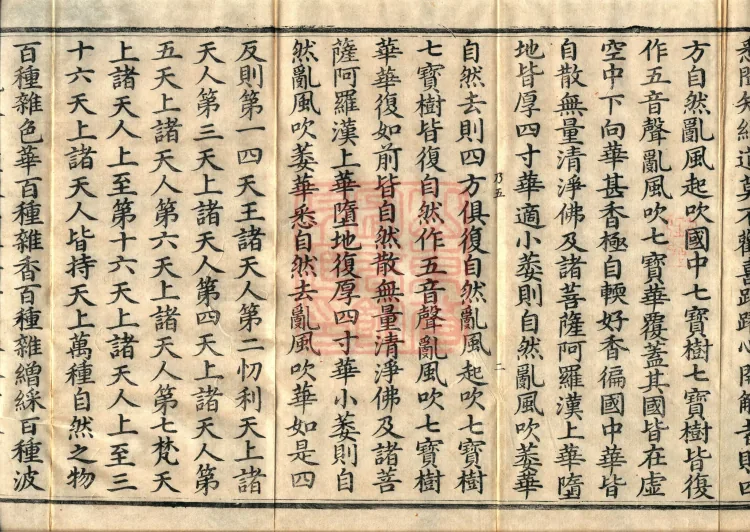 方自然亂風起吹國中七寶樹七寶樹皆復
作五音聲亂風吹七寶華覆蓋其國皆在虛
空中下向華甚香極自輭好香徧國中華皆
自散無量清淨佛及諸菩薩阿羅漢上華墮
地皆厚四寸華適小萎則自然亂風吹萎華
乃五 二
自然去則四方俱復自然亂風起吹七寶樹
七寶樹皆復自然作五音聲亂風吹七寶樹
華華復如前皆自然散無量清淨佛及諸菩
薩阿羅漢上華墮地復厚四寸華小萎則自
然亂風吹萎華悉自然去亂風吹華如是四
反則第一四天王諸天人第二忉利天上諸
天人第三天上諸天人第四天上諸天人第
五天上諸天人第六天上諸天人第七梵天
上諸天人上至第十六天上諸天人上至三
十六天上諸天人皆持天上萬種自然之物
百種雜色華百種雜香百種雜繒綵百種波